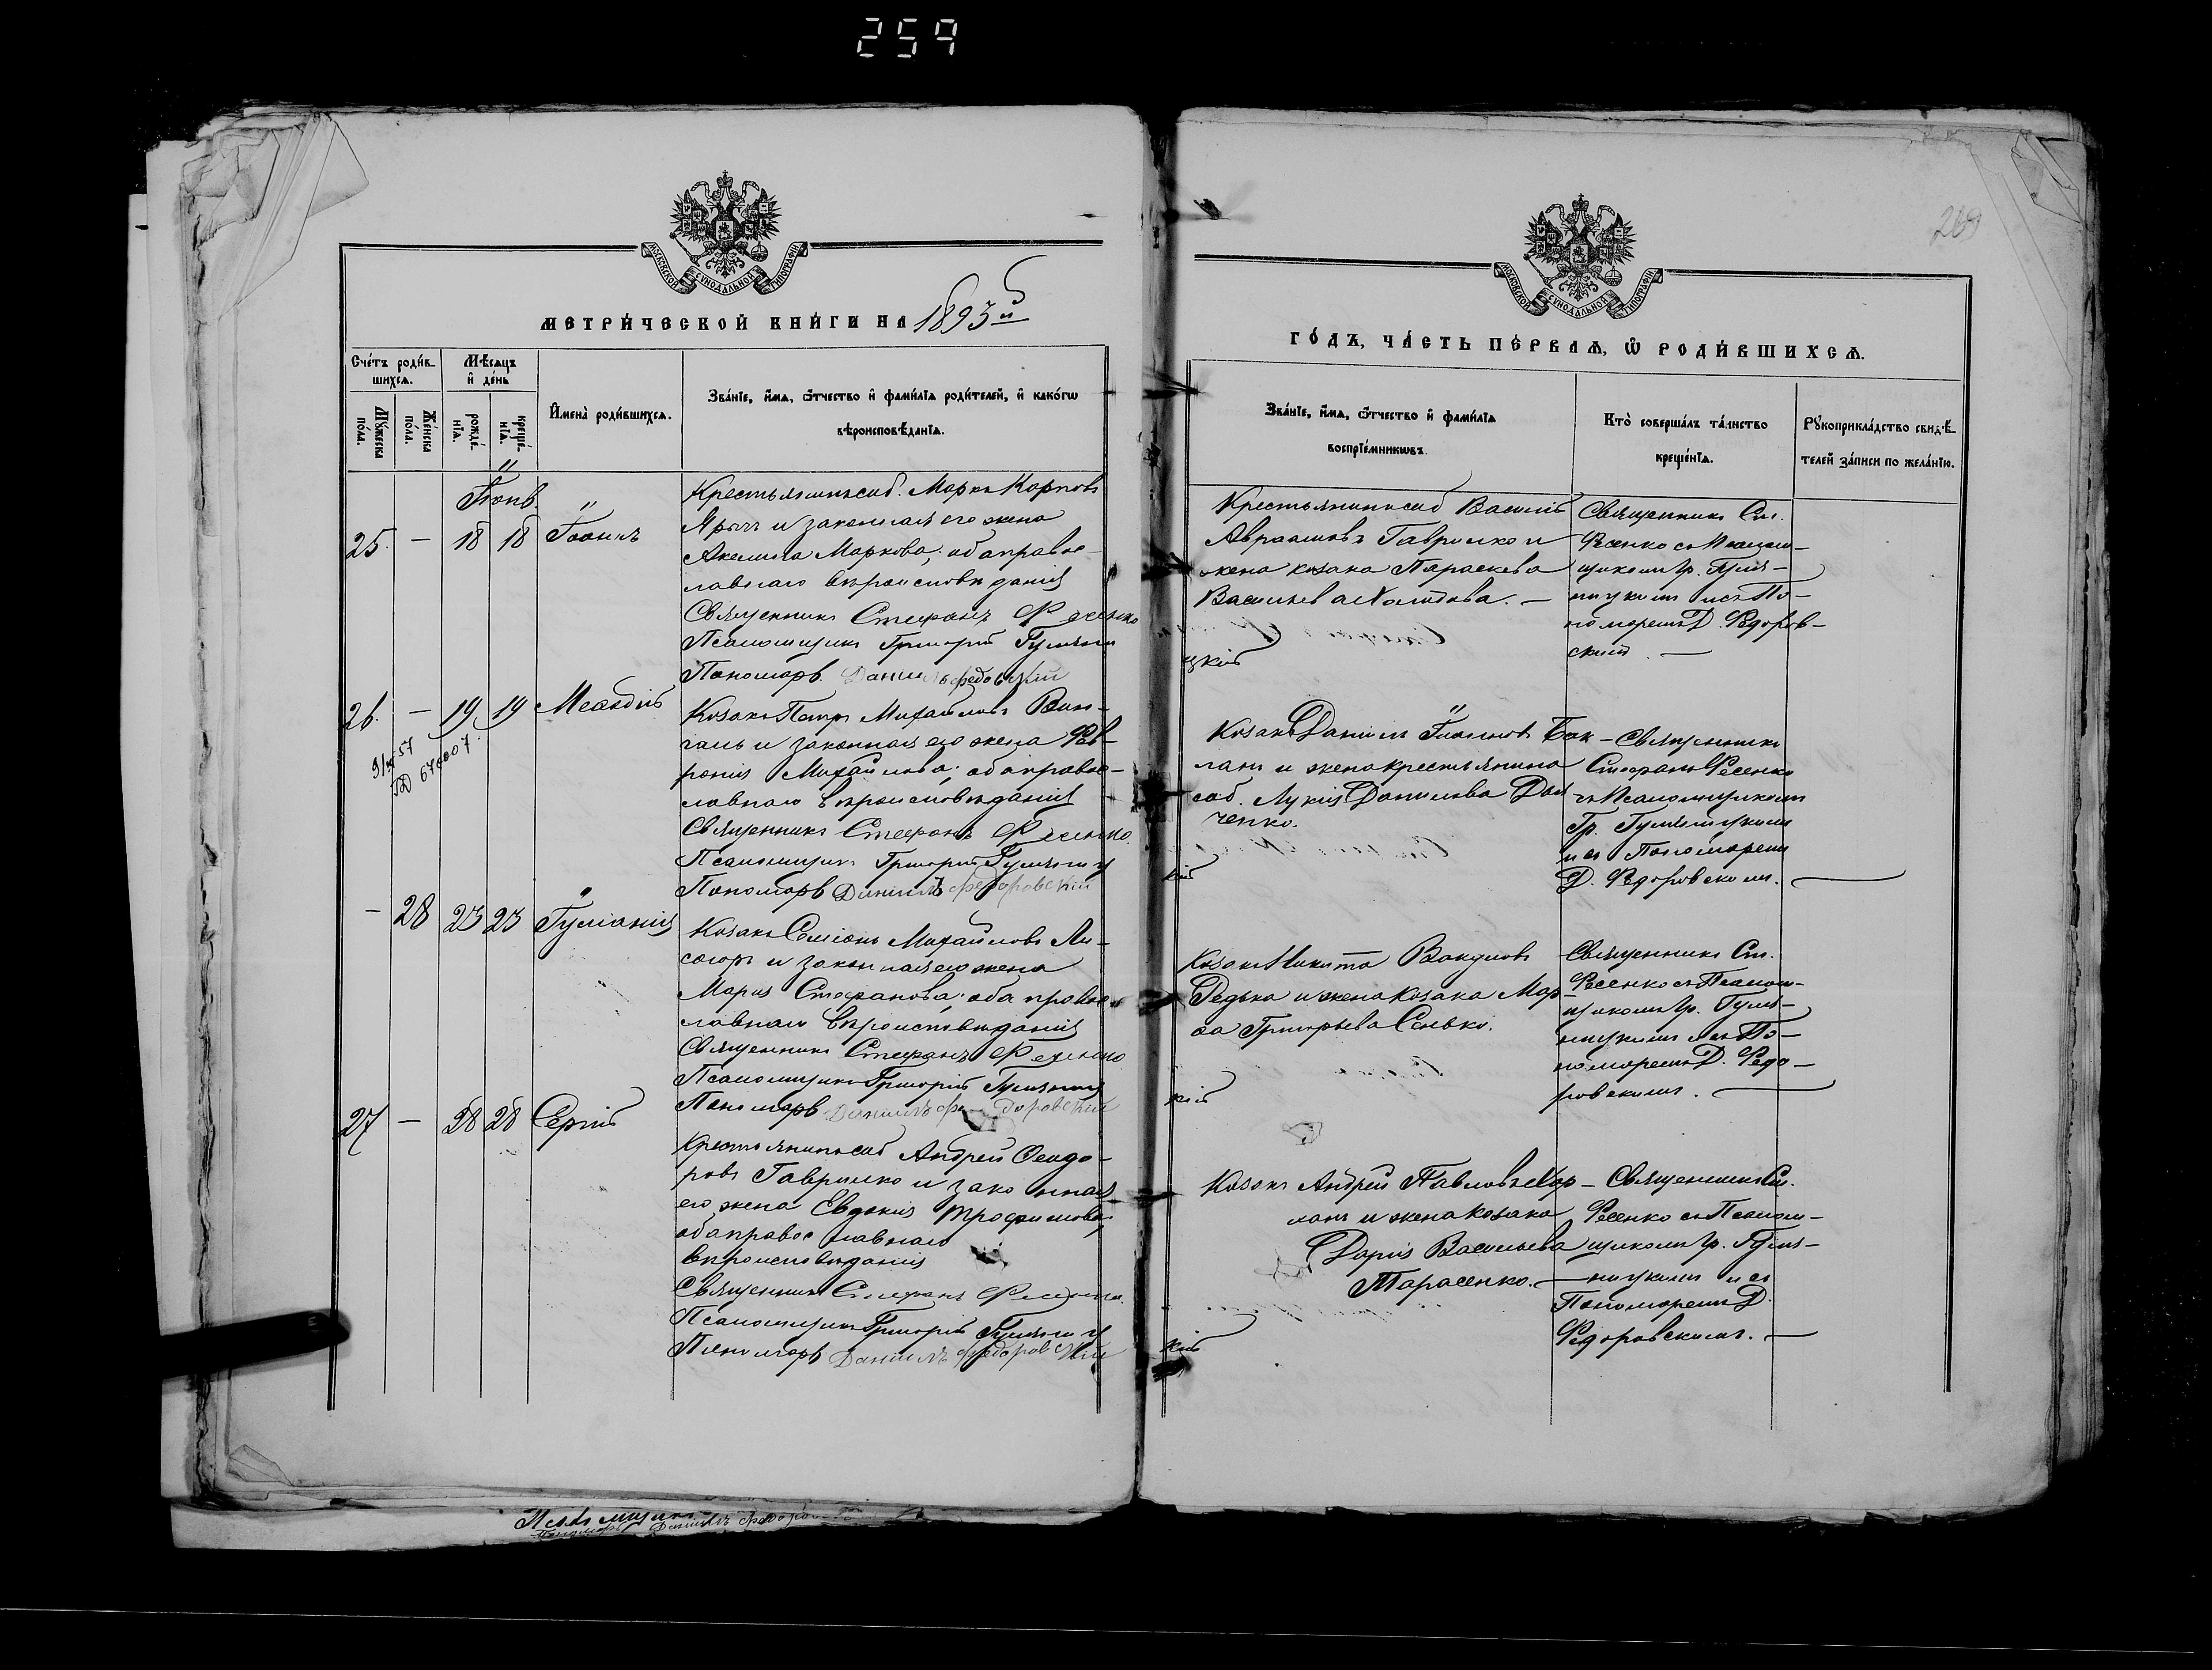 259
269
МОСКОВСКОЙ СУНОДАЛЬНОЙ ТИПОГРАФІИ
МЕТРИ́ЧЕСКОЙ КНИ́ГИ НА 1893й
Сче́тъ роди́в-
шихсѧ.
Мѣ́сѧцъ
и҆ де́нь
Мꙋ́жеска
по́ла.
Же́нска
по́ла.
рожде́-
нїѧ.
креще́-
нїѧ.
И҆мена̀ роди́вшихсѧ.
Зва́нїе, и҆́мѧ, ѻ҆́тчество и҆ фами́лїѧ роди́телей, и҆ како́гѡ
вѣроисповѣ́данїѧ.
25. — 18 18 Іоаннъ
Крестьянинъ соб. Марко Карповъ
Ярычъ и законная его жена
Акилина Маркова; оба правос-
лавнаго вѣроисповѣданія
Священникъ Стефанъ Фесенко
Псаломщикъ Григорій
Пономарь Даніилъ Федоровскій
26. — 19 19 Меѳодій
9/ 57
Козакъ Петръ Михайловъ
и законная его жена Фев-
ронія Михайлова; оба правос-
лавнаго вѣроисповѣданія
Священникъ Стефанъ Фесенко.
Псаломщикъ Григорій
Пономарь Даніилъ Федоровскій
— 28 23 23 Іуліанія
Козакъ Симеонъ Михайловъ Ли-
согоръ и законная его жена
Марія Стефанова; оба правос-
лавнаго вѣроисповѣданія
Священникъ Стефанъ Фесенко
Псаломщикъ Григорій
Пономарь Даніилъ Федоровскій
27 — 28 28 Сергій
Крестьянинъ соб Андрей Ѳеодо-
ровъ Гаврилко и законная
его жена Евдокія Трофимова,
оба православнаго
вѣроисповѣданія
Священникъ Стефанъ Фесенко.
Псаломщикъ Григорій
Пономарь Даніилъ Федоровскій
Псаломщикъ
Пономарь Даніилъ
МОСКОВСКОЙ СУНОДАЛЬНОЙ ТИПОГРАФІИ
ГО́ДЪ, ЧА́СТЬ ПЕ́РВАѦ, Ѽ РОДИ́ВШИХСѦ.
Зва́нїе, и҆́мѧ, ѻ҆́тчество и҆ фами́лїѧ
воспрїе́мникѡвъ.
Кто̀ соверша́лъ та́инство
креще́нїѧ.
Рꙋкоприкла́дство свидѣ́-
телей за́писи по жела́нїю.
Крестьянинъ соб Василій
Авраамовъ Гаврилко и
жена козака Параскева
Васильева
цкій
Священникъ Ст.
Фесенко съ Псалом-
щикомъ Гр.
и съ По-
номаремъ Д. Федоров-
скимъ. —
Козакъ Даніилъ Іоанновъ Бак-
ланъ и жена крестьянина
соб. Лукія Данилова
ченко.
кій
Священникъ
Стефанъ Фесенко
съ Псаломщикомъ
Гр.
и съ Пономаремъ
Д. Федоровскимъ. —
Козакъ Никита Вакуловъ
Редька и жена козака Мар-
ѳа Григорьева Сенько.
кій
Священникъ Ст.
Фесенко съ Псалом-
щикомъ Гр.
и съ По-
номаремъ Д. Федо-
ровскимъ. —
Козакъ Андрей Павловъ
и жена козака
Дарія Васильева
Тарасенко. —
кій
Священникъ Ст.
Фесенко съ Псалом-
щикомъ Гр.
и съ
Пономаремъ Д.
Федоровскимъ. —